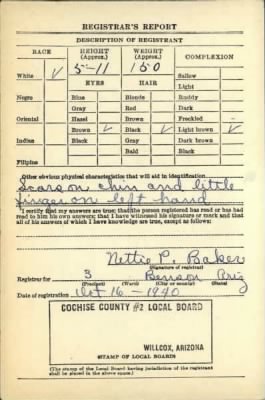 REGISTRAR'S REPORT
DESCRIPTION OF REGISTRANT
RACE HEIGHT (Approx.) WEIGHT (Approx.) COMPLEXION
5-11 150
White ✓ Sallow
EYES HAIR Light
Negro Blue Blonde Ruddy
Gray Red Dark
Oriental Hazel Brown Freckled
Brown ✓ Black ✓ Light brown ✓
Indian Black Gray Dark brown
Bald Black
Filipino
Other obvious physical characteristics that will aid in identification
Scars on chin and little
finger on left hand
I certify that my answers are true; that the person registered has read or has had
read to him his own answers; that I have witnessed his signature or mark and that
all of his answers of which I have knowledge are true, except as follows:
Nettie P. Baker
(Signature of registrar)
Registrar for 3 Benson Ariz
(Precinct) (Ward) (City or county) (State)
Date of registration Oct 16 - 1940
COCHISE COUNTY #2 LOCAL BOARD
WILLCOX, ARIZONA
STAMP OF LOCAL BOARD
(The stamp of the Local Board having jurisdiction of the registrant
shall be placed in the above space.)